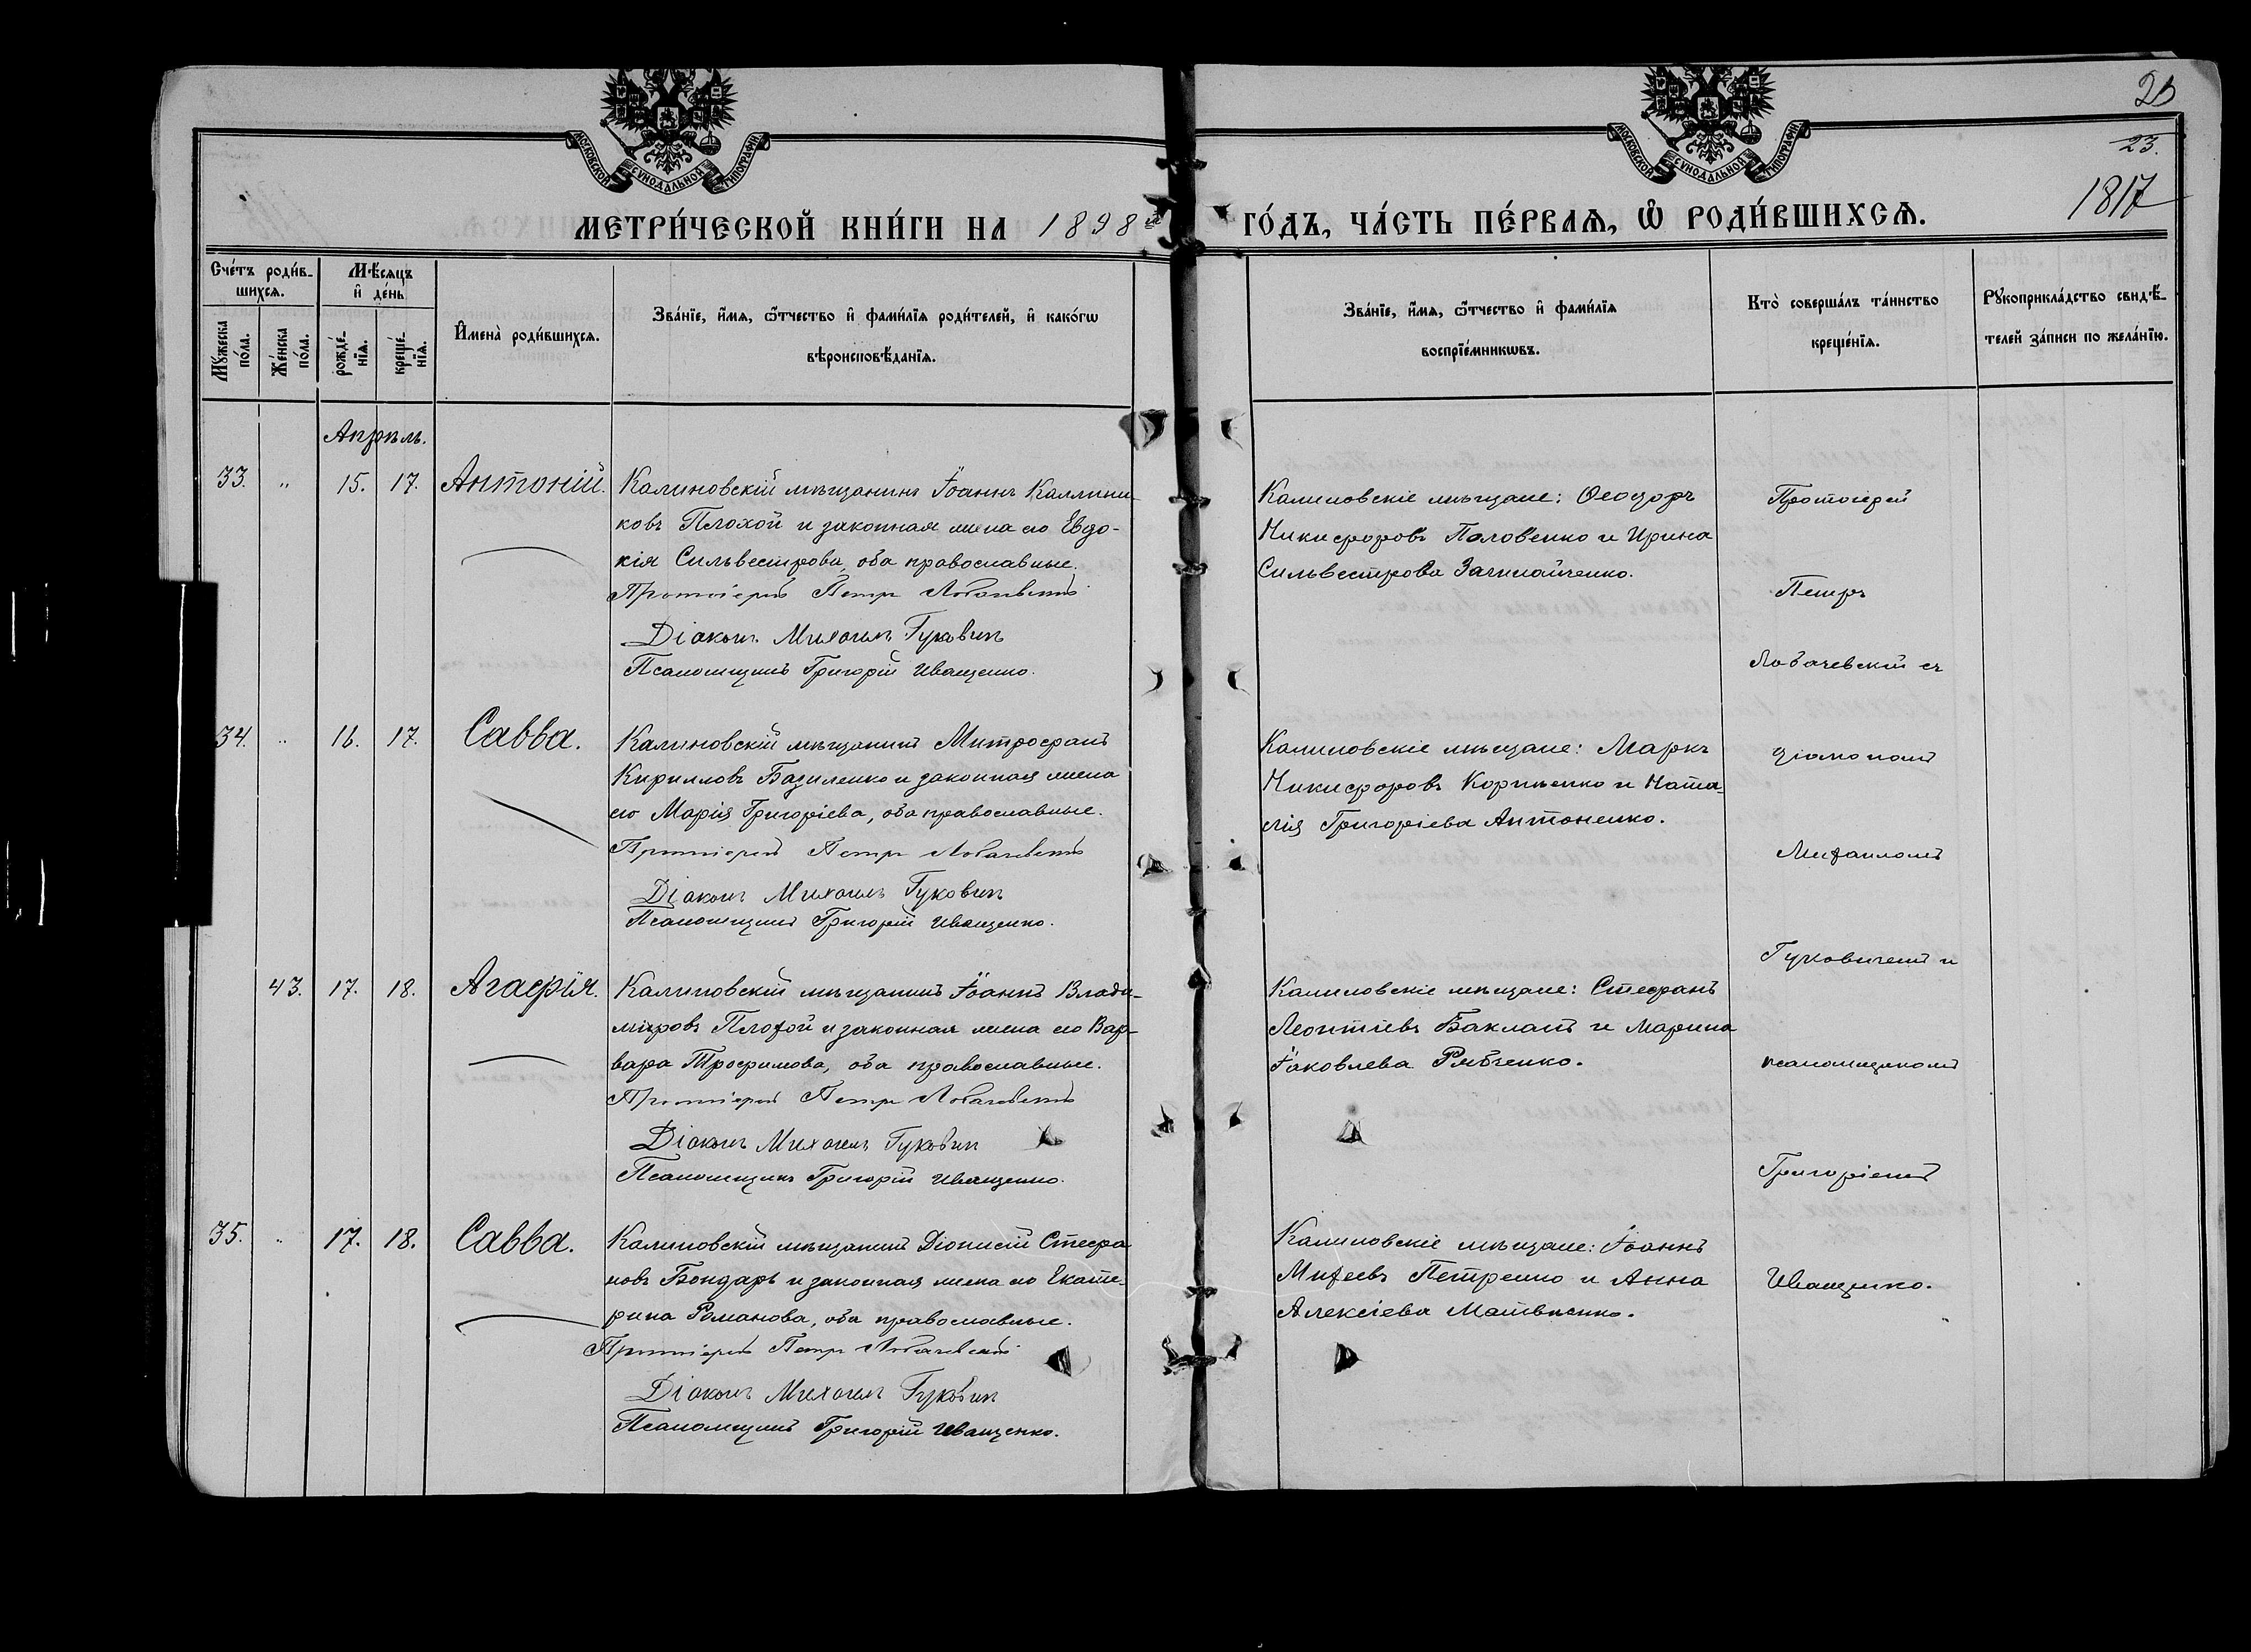 26
23.
1817
МОСКОВСКОЙ СУНОДАЛЬНОЙ ТИПОГРАФІИ
МОСКОВСКОЙ СУНОДАЛЬНОЙ ТИПОГРАФІИ
МЕТРИ́ЧЕСКОЙ КНИ́ГИ НА 1898й
ГО́ДЪ, ЧА́СТЬ ПЕ́РВАѦ, Ѡ҆ РОДИ́ВШИХСѦ.
Сче́тъ роди́в-
шихсѧ.
Мѣ́сѧцъ
и҆ де́нь
Мꙋ́жеска
по́ла.
Же́нска
по́ла.
рожде́-
нїѧ.
креще́-
нїѧ.
И҆мена̀ роди́вшихсѧ.
Зва́нїе, и҆́мѧ, ѻ҆́тчество и҆ фами́лїѧ роди́телей, и҆ како́гѡ
вѣроисповѣ́данїѧ.
Зва́нїе, и҆́мѧ, ѻ҆́тчество и҆ фами́лїѧ
воспрїе́мникѡвъ.
Кто̀ соверша́лъ та́инство
креще́нїѧ.
Рꙋкоприкла́дство свидѣ́-
телей за́писи по жела́нїю.
Апрѣль.
33. " 15. 17. Антоній.
Калиновскій мѣщанинъ Іоаннъ Каллини-
ковъ Плохой и законная жена его Евдо-
кія Сильвестрова, оба православные.
Протоіерей Петръ Лобачевскій
Діаконъ Михаилъ Гуковичъ
Псаломщикъ Григорій Иващенко.
Калиновскіе мѣщане: Ѳеодоръ
Никифоровъ Половенко и Ирина
Сильвестрова Зачинайченко.
34. " 16. 17. Савва.
Калиновскій мѣщанинъ Митрофанъ
Кирилловъ Базиленко и законная жена
его Марія Григоріева, оба православные.
Протоіерей Петръ Лобачевскій
Діаконъ Михаилъ Гуковичъ
Псаломщикъ Григорій Иващенко.
Калиновскіе мѣщане: Маркъ
Никифоровъ Корніенко и Ната-
лія Григоріева Антоненко.
43. 17. 18. Агафія.
Калиновскій мѣщанинъ Іоаннъ Влади-
міровъ Плохой и законная жена его Вар-
вара Трофимова, оба православные.
Протоіерей Петръ Лобачевскій
Діаконъ Михаилъ Гуковичъ
Псаломщикъ Григорій Иващенко.
Калиновскіе мѣщане: Стефанъ
Леонтіевъ Бакланъ и Марина
Іаковлева Рябченко.
35. " 17. 18. Савва.
Калиновскій мѣщанинъ Діонисій Стефа-
новъ Бондарь и законная жена его Екате-
рина Романова, оба православные.
Протоіерей Петръ Лобачевскій
Діаконъ Михаилъ Гуковичъ
Псаломщикъ Григорій Иващенко.
Калиновскіе мѣщане: Іоаннъ
Михеевъ Петренко и Анна
Алексіева Матвіенко.
Протоіерей
Петръ
Лобачевскій съ
діакономъ
Михаиломъ
Гуковичемъ и
псаломщикомъ
Григоріемъ
Иващенко.